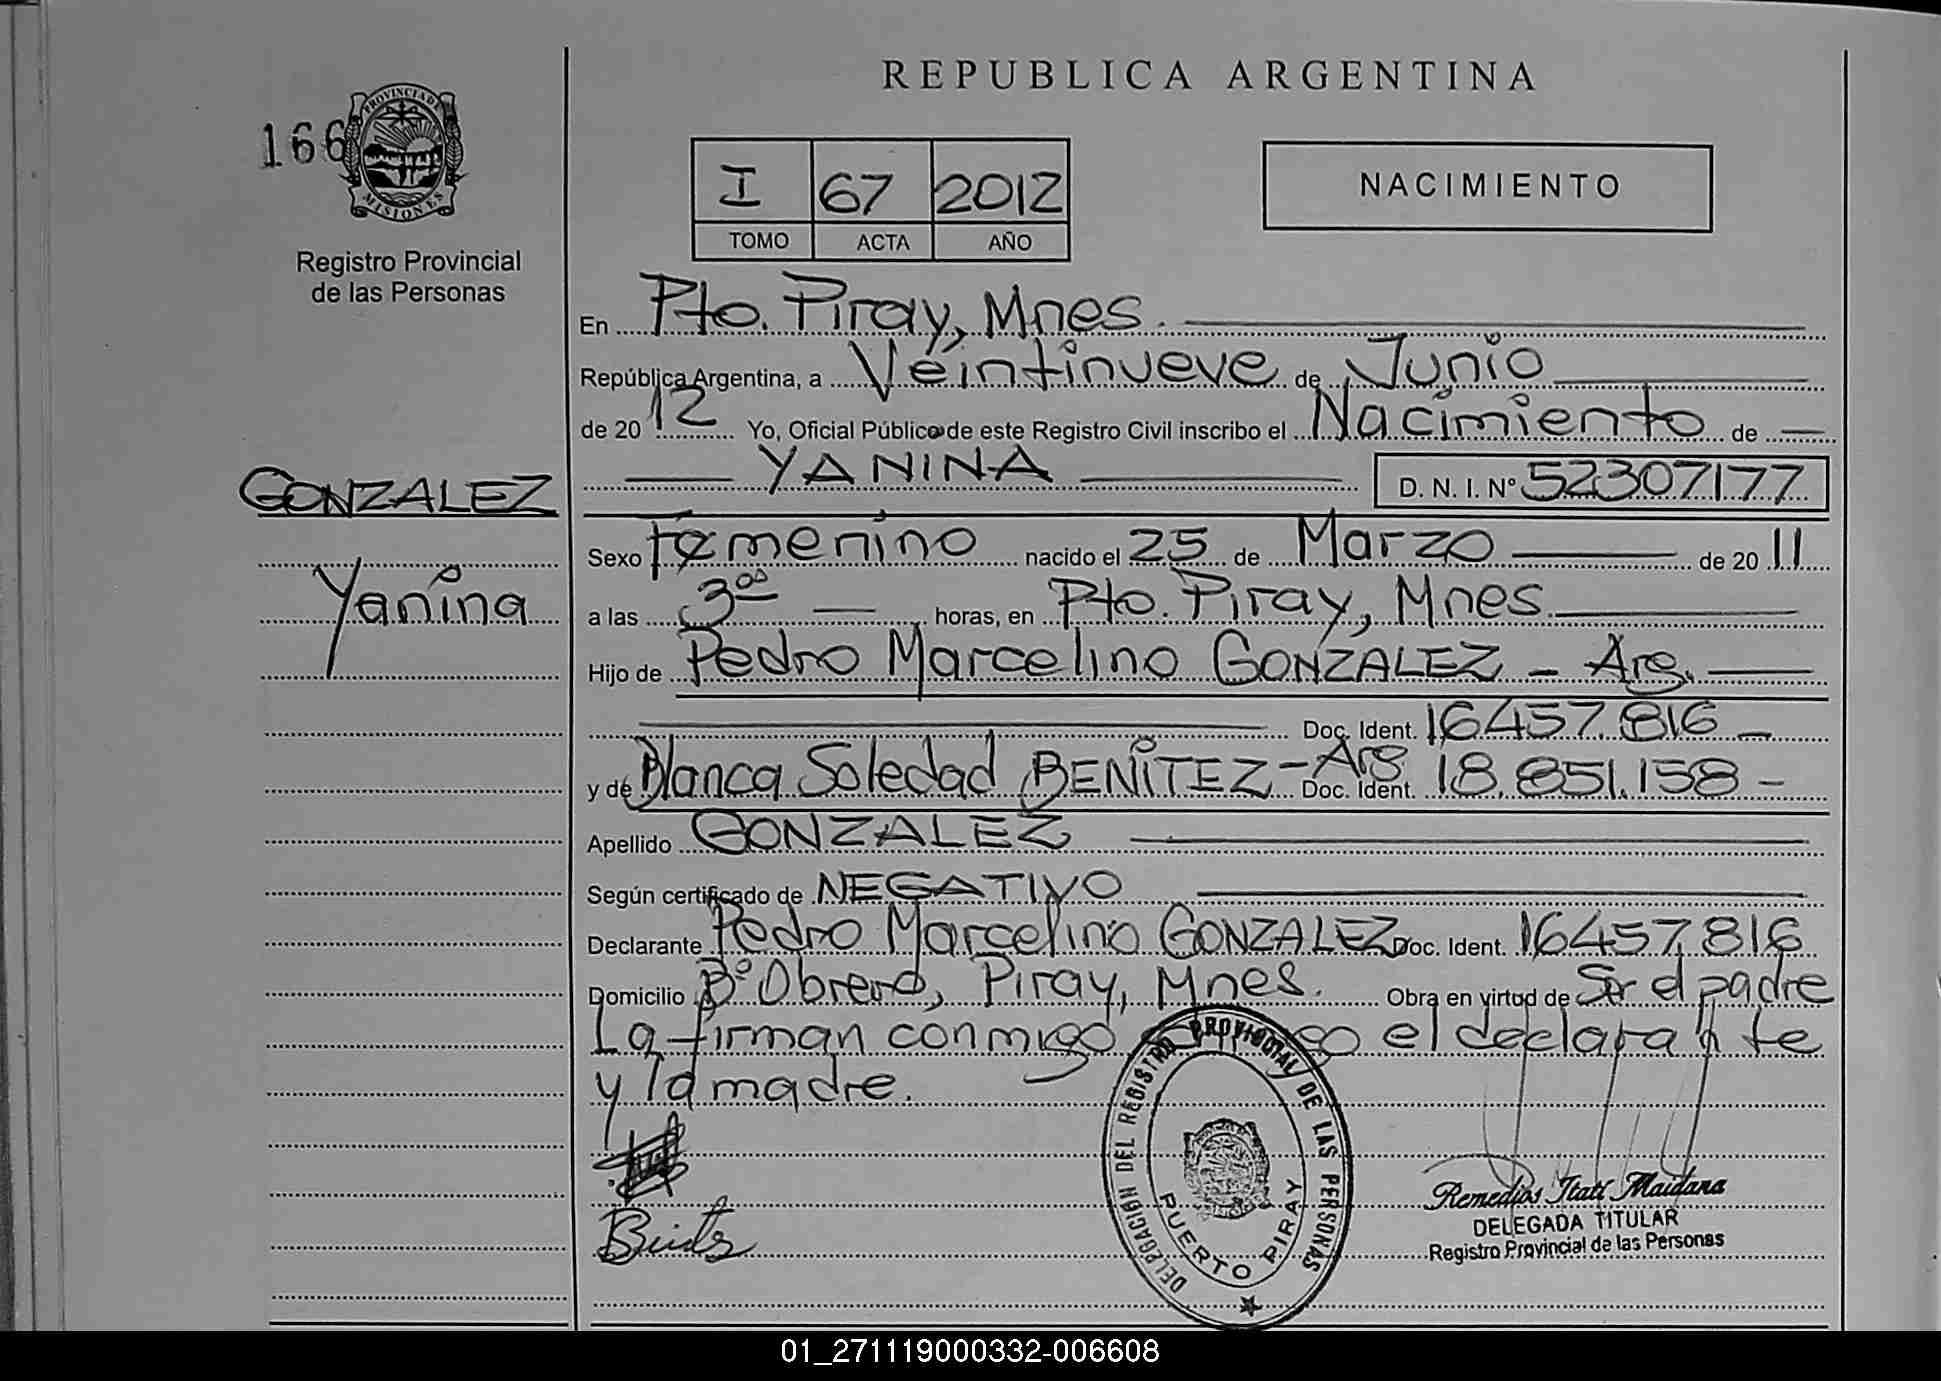 REPUBLICA ARGENTINA
166
PROVINCIA DE
MISIONES
Registro Provincial
de las Personas
I 67 2012
TOMO ACTA AÑO
NACIMIENTO
En Pto. Piray, Mnes.
República Argentina, a Veintinueve de Junio
de 2012 Yo, Oficial Público de este Registro Civil inscribo el Nacimiento de
YANINA D. N. I. N° 52307177
GONZALEZ
Yanina
Sexo Femenino nacido el 25 de Marzo de 2011
a las 3 horas, en Pto. Piray, Mnes.
Hijo de Pedro Marcelino GONZALEZ - Arg.
Doc. Ident. 16457.816
y de Blanca Soledad BENITEZ - Arg Doc. Ident. 18.851.158 -
Apellido GONZALEZ
Según certificado de NEGATIVO
Declarante Pedro Marcelino GONZALEZ Doc. Ident. 16457.816
Domicilio B° Obrero, Piray, Mnes. Obra en virtud de Ser el padre
La firman conmigo el declarante
y la madre.
DELEGACIÓN DEL REGISTRO PROVINCIAL DE LAS PERSONAS
PUERTO PIRAY
Remedios Itatí Maidana
DELEGADA TITULAR
Registro Provincial de las Personas
01_271119000332-006608